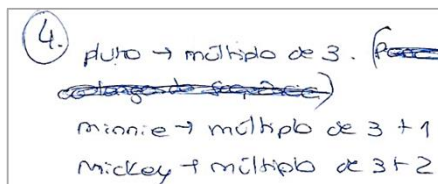 4.
pluto → múltiplo de 3. (
minnie → múltiplo de 3 + 1
mickey → múltiplo de 3 + 2